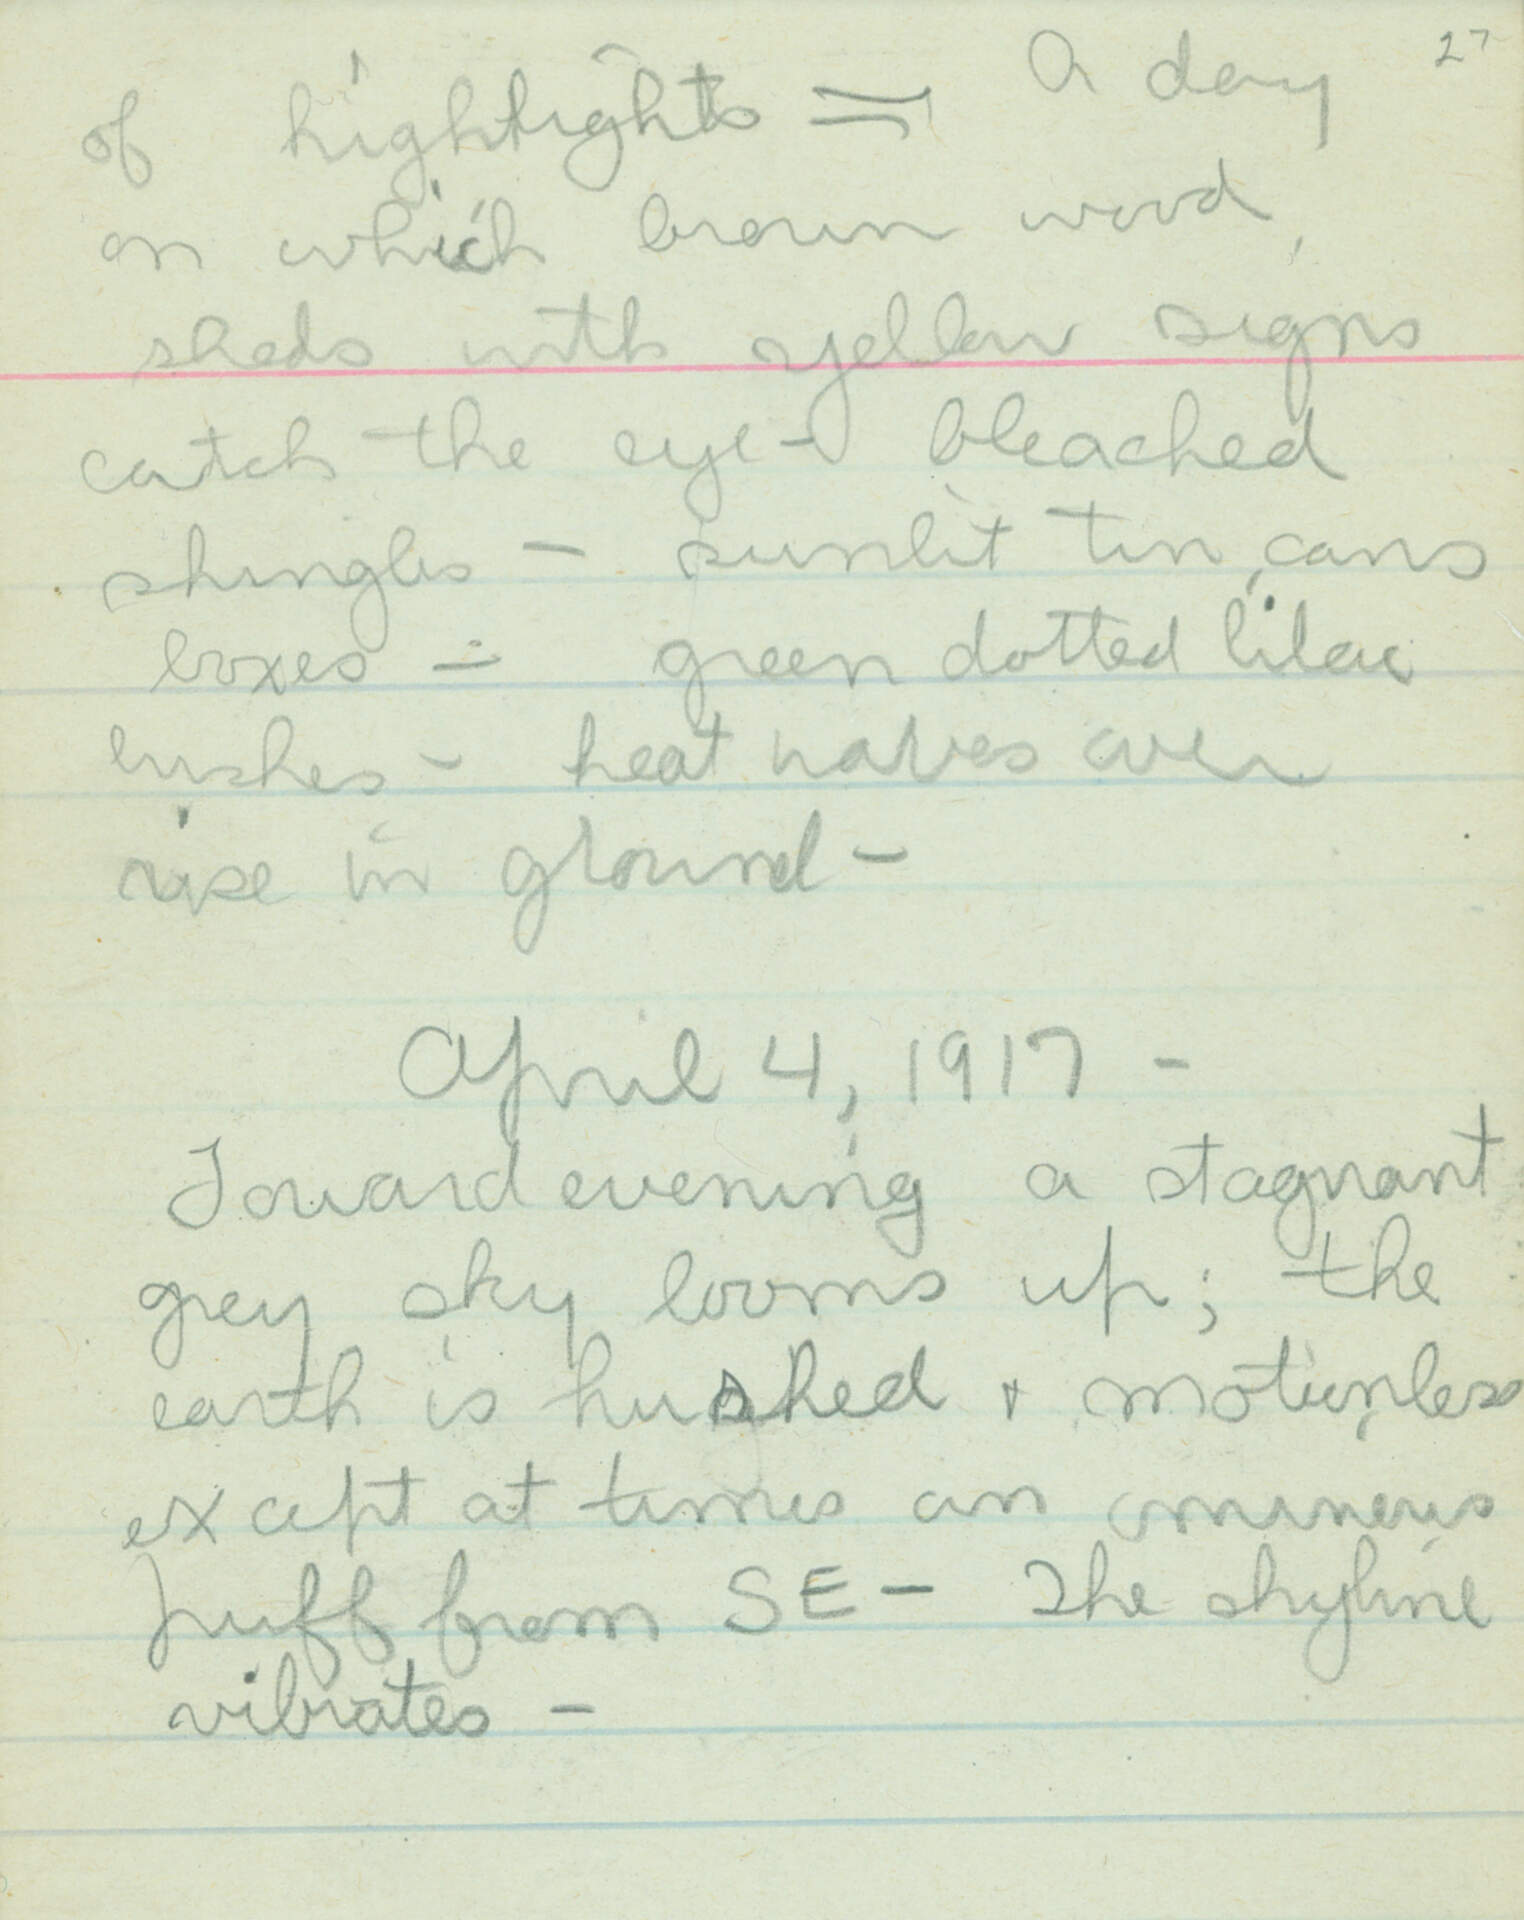 27
of highlights — A day
on which brown wood,
sheds with yellow signs
catch the eye — bleached
shingles — sunlit tin, cans
boxes — green dotted lilac
bushes — heat waves over
rise in ground —
April 4, 1917 -
Toward evening a stagnant
grey sky looms up; the
earth is hushed + motionless
except at times an ominous
puff from SE — The skyline
vibrates —